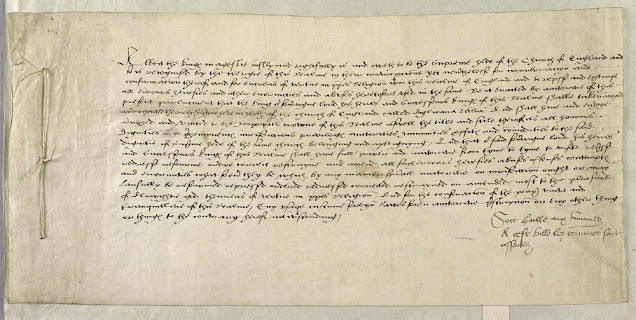 Albeit the kinges magestie justly and rightfully is and oweth to be the supreme hede of the Churche of England and
so is recognysed by the clergie of this Realme in theyre convocacions yet neverthelesse for corroboracion and
confirmacion therof and for encrease of vertue in religion within this realme of England and to represse and extirpe
all errours heresies and other enormities and abuses heretofore used in the same Be it enacted by auctorite of this
present parliament that the king our soveraigne lord his heires and successours kinges of this Realme shalbe takyn
and reputed the onely supreme hede in erthe of the church of England called Anglicana ecclesia and shall have and enjoye
annexed and unyted to the imperial crowne of this Realme aswell the title and style therof as all honours
dignities preemynences jurisdiccions privileges auctorities ymmunities profitis and commodities to the said
dignitie of supreme hede of the same church belonging and apperteyning And that our said soveraigne lord his heires
and successours kinges of this Realme shall have full power and auctorite from tyme to tyme to visite represse
redresse reforme ordre correct restrayne and amende all such errours heresies abuses offences contemptis
and enormities what soever they be which by any maner spirituall auctorite or jurisdiccion ought or may
lawfully be reformed repressed ordred redressed corrected restrayned or amended most to the pleasure
of almyghtie god thencrease of vertue in religion and for the conservacion of the peace unitie and
tranquillitie of this Realme Any usage custome foreyn lawes foreyn auctorite prescripcion or any other thing
or things to the contrary herof notwithstonding
Soit baille aux communes
A ceste bille les communes sont
assentuz